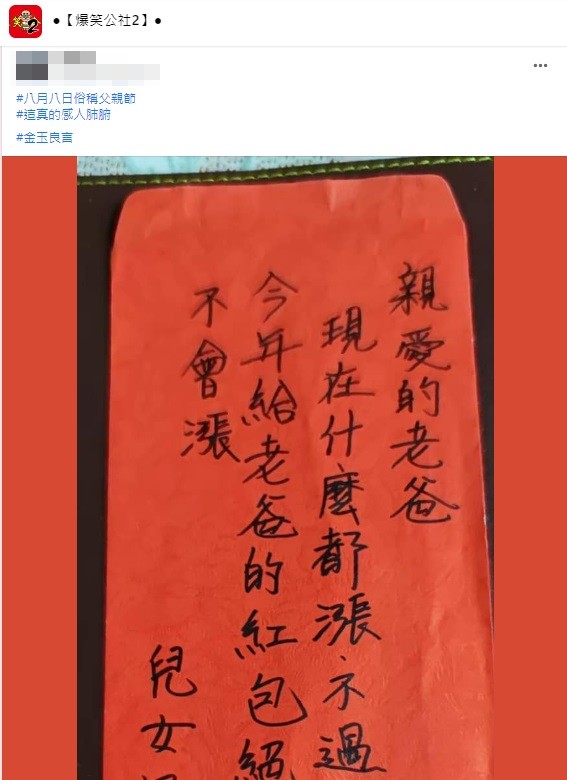 ●【爆笑公社2】●
#八月八日俗稱父親節
#這真的感人肺腑
#金玉良言
親愛的老爸
現在什麼都漲不過
今年給老爸的紅包絕
不會漲
兒女